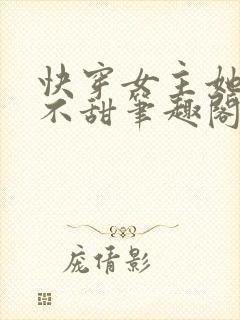 快穿女主她
不甜笔趣阁
庞倩影